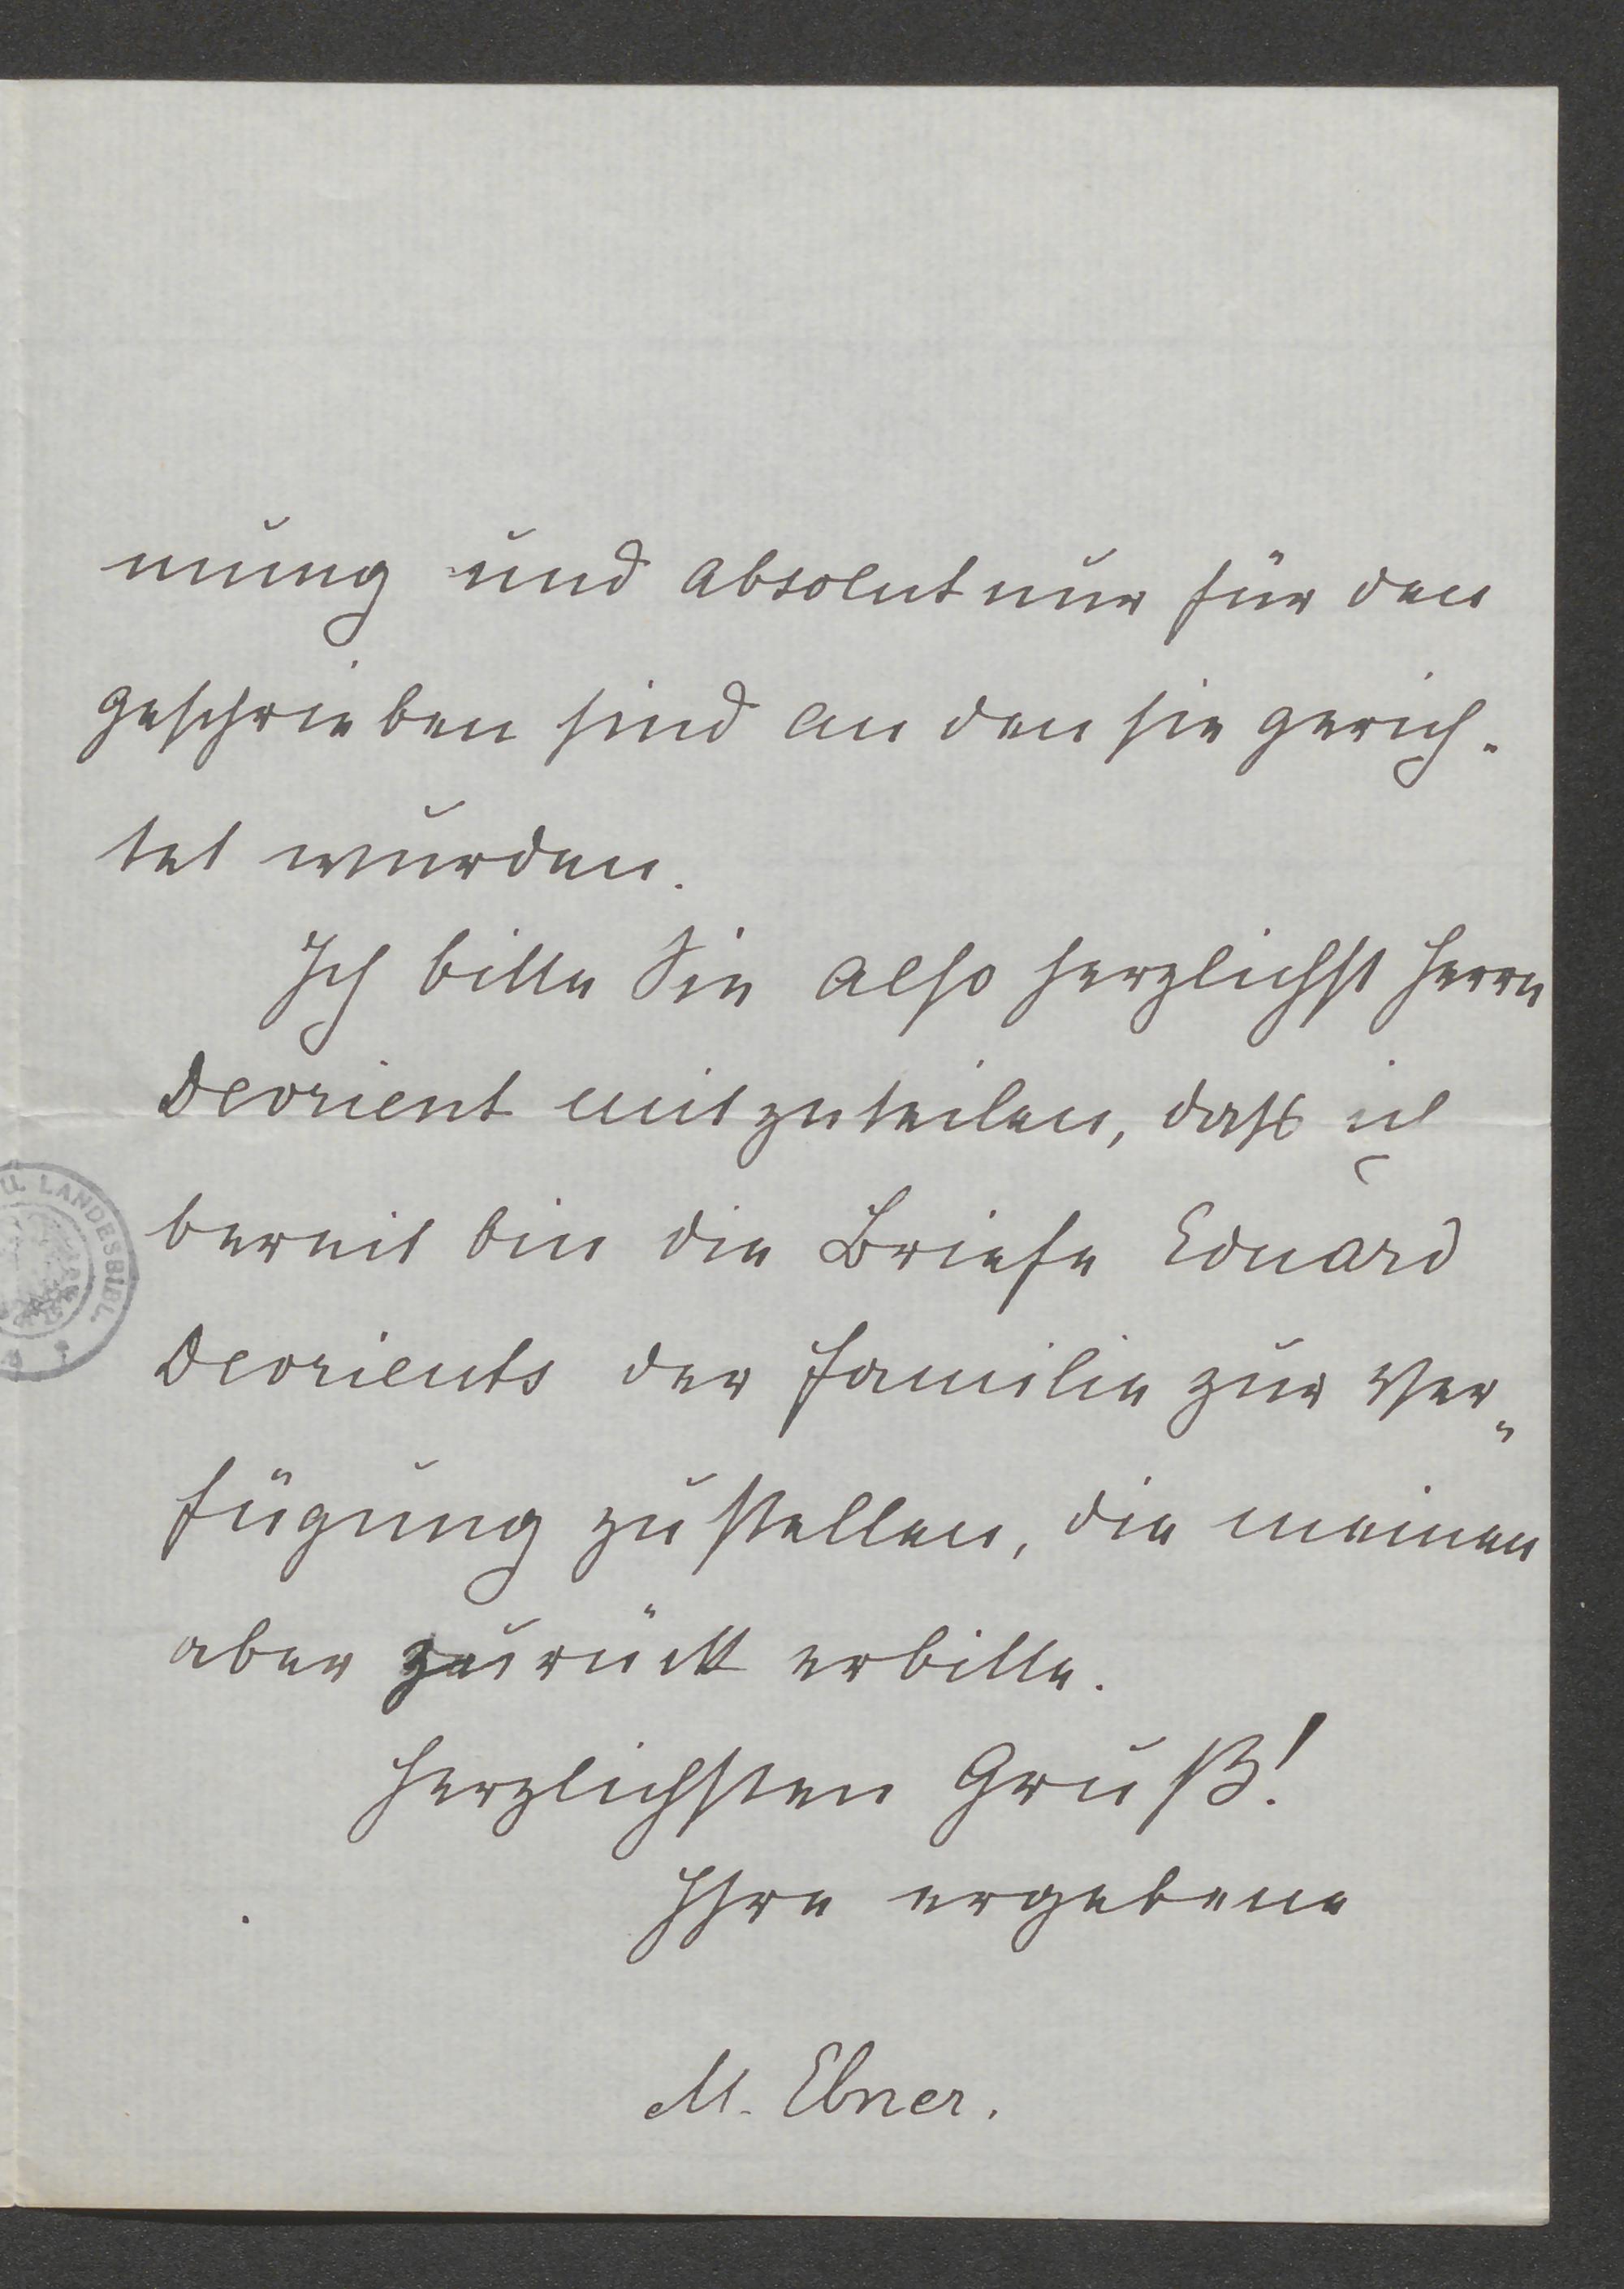 mung und absolut nur für den
geschrieben sind an den sie gerich-
tet wurden.
Ich bitte Sie also herzlichst Herrn
Devrient mitzuteilen, dass ich
bereit bin die Briefe Eduard
Devrients der Familie zur Ver-
fügung zu stellen, die meinen
aber zurück erbitte.
Herzlichsten Gruß!
Ihre ergebene
M. Ebner.
U. LANDESBIBL.